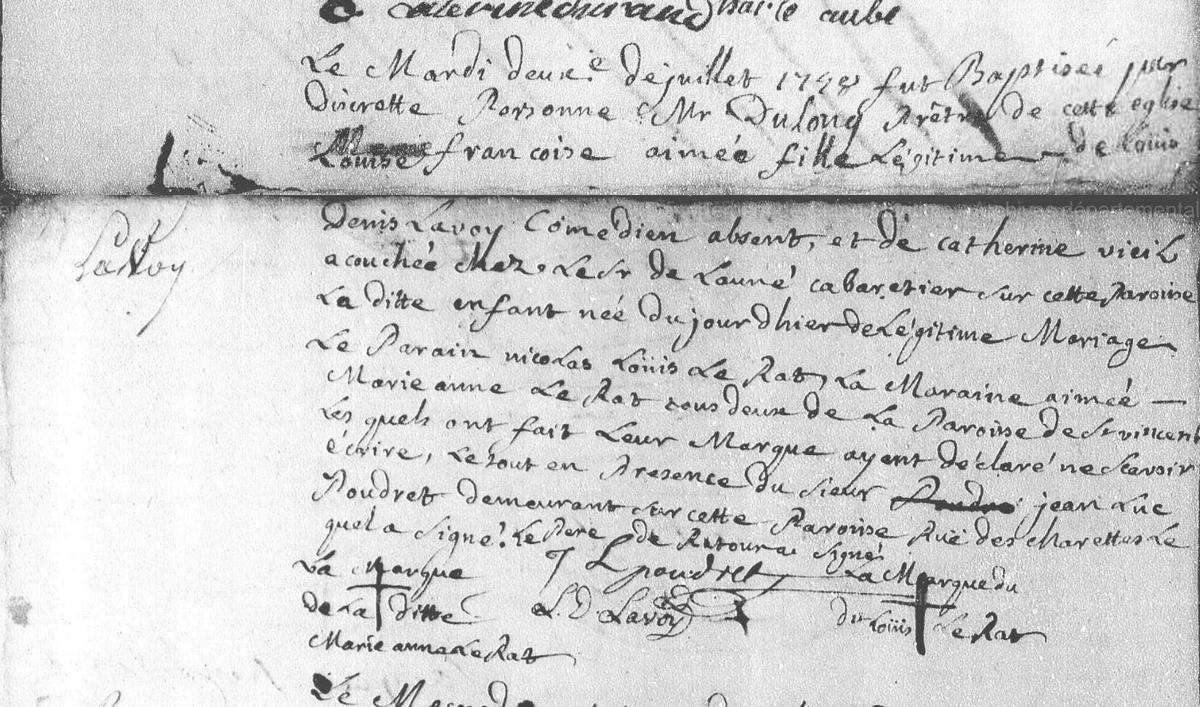 Marie aubé
Le Mardi deuxe. de juillet 1748 fut Baptiséé par
Discrette Personne Mr Dulong Prêtre de cette eglise
Louise francoise aimée fille Légitime de Louis
Denis Lavoy Comédien absent, et de catherine vieil
acouchée chez Le Sr de Launé cabaretier sur cette Paroisse
La ditte enfant née Du jour Dhier de Légitime Mariage
Le Parain nicolas Loüis Le Rat, La Maraine aimeé —
Marie anne Le Rat tous deux de La Paroisse de St vincent
Les quels ont fait Leur Marque ayent déclaré ne Scavoir
écrire, Le tout en Presence Du Sieur Poudre jean Luc
Poudret demeurant sur cette Paroisse Ruë des charettes Le
quel a Signé. Le Pere de Retour a Signé
La Marque
De La Ditte
Marie anne Le Rat
J L poudret
L D Lavoy
La Marque du
dit Loüis Le Rat
Lavoy